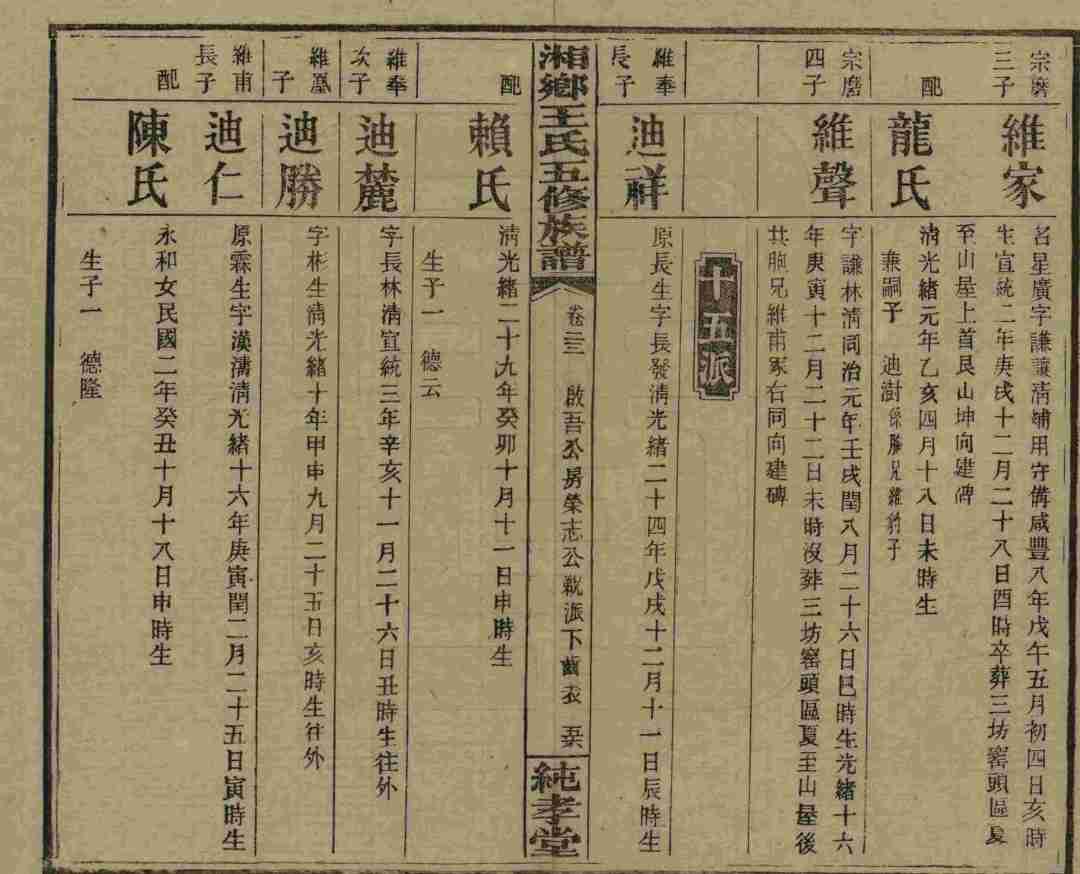 宗磨三子
維家
名星廣字謙讓清補用守俻咸豐八年戊午五月初四日亥時
生宣統二年庚戌十二月二十八日酉時卒葬三坊窰頭區夏
至山屋上首艮山坤向建碑
配
龍氏
清光緒元年乙亥四月十八日未時生
兼嗣子 迪澍 係胞兄維豹子
宗磨四子
維聲
字謙林清同治元年壬戌閏八月二十六日巳時生光緒十六
年庚寅十二月二十二日未時沒葬三坊窰頭區夏至山屋後
共胞兄維甫冢右同向建碑
十五派
維奉長子
迪祥
原長生字長發清光緒二十四年戊戌十二月十一日辰時生
湘鄉王氏五修族譜
卷三三
啟吾公房榮志公 派下齒衣
純孝堂
配
賴氏
清光緒二十九年癸卯十月十一日申時生
生子一 德云
維奉次子
迪麓
字長林清宣統三年辛亥十一月二十六日丑時生往外
維 子
迪勝
字彬生清光緒十年甲申九月二十五日亥時生往外
維甫長子
迪仁
原霖生字漢清清光緒十六年庚寅閏二月二十五日寅時生
配
陳氏
永和女民國二年癸丑十月十八日申時生
生子一 德隆